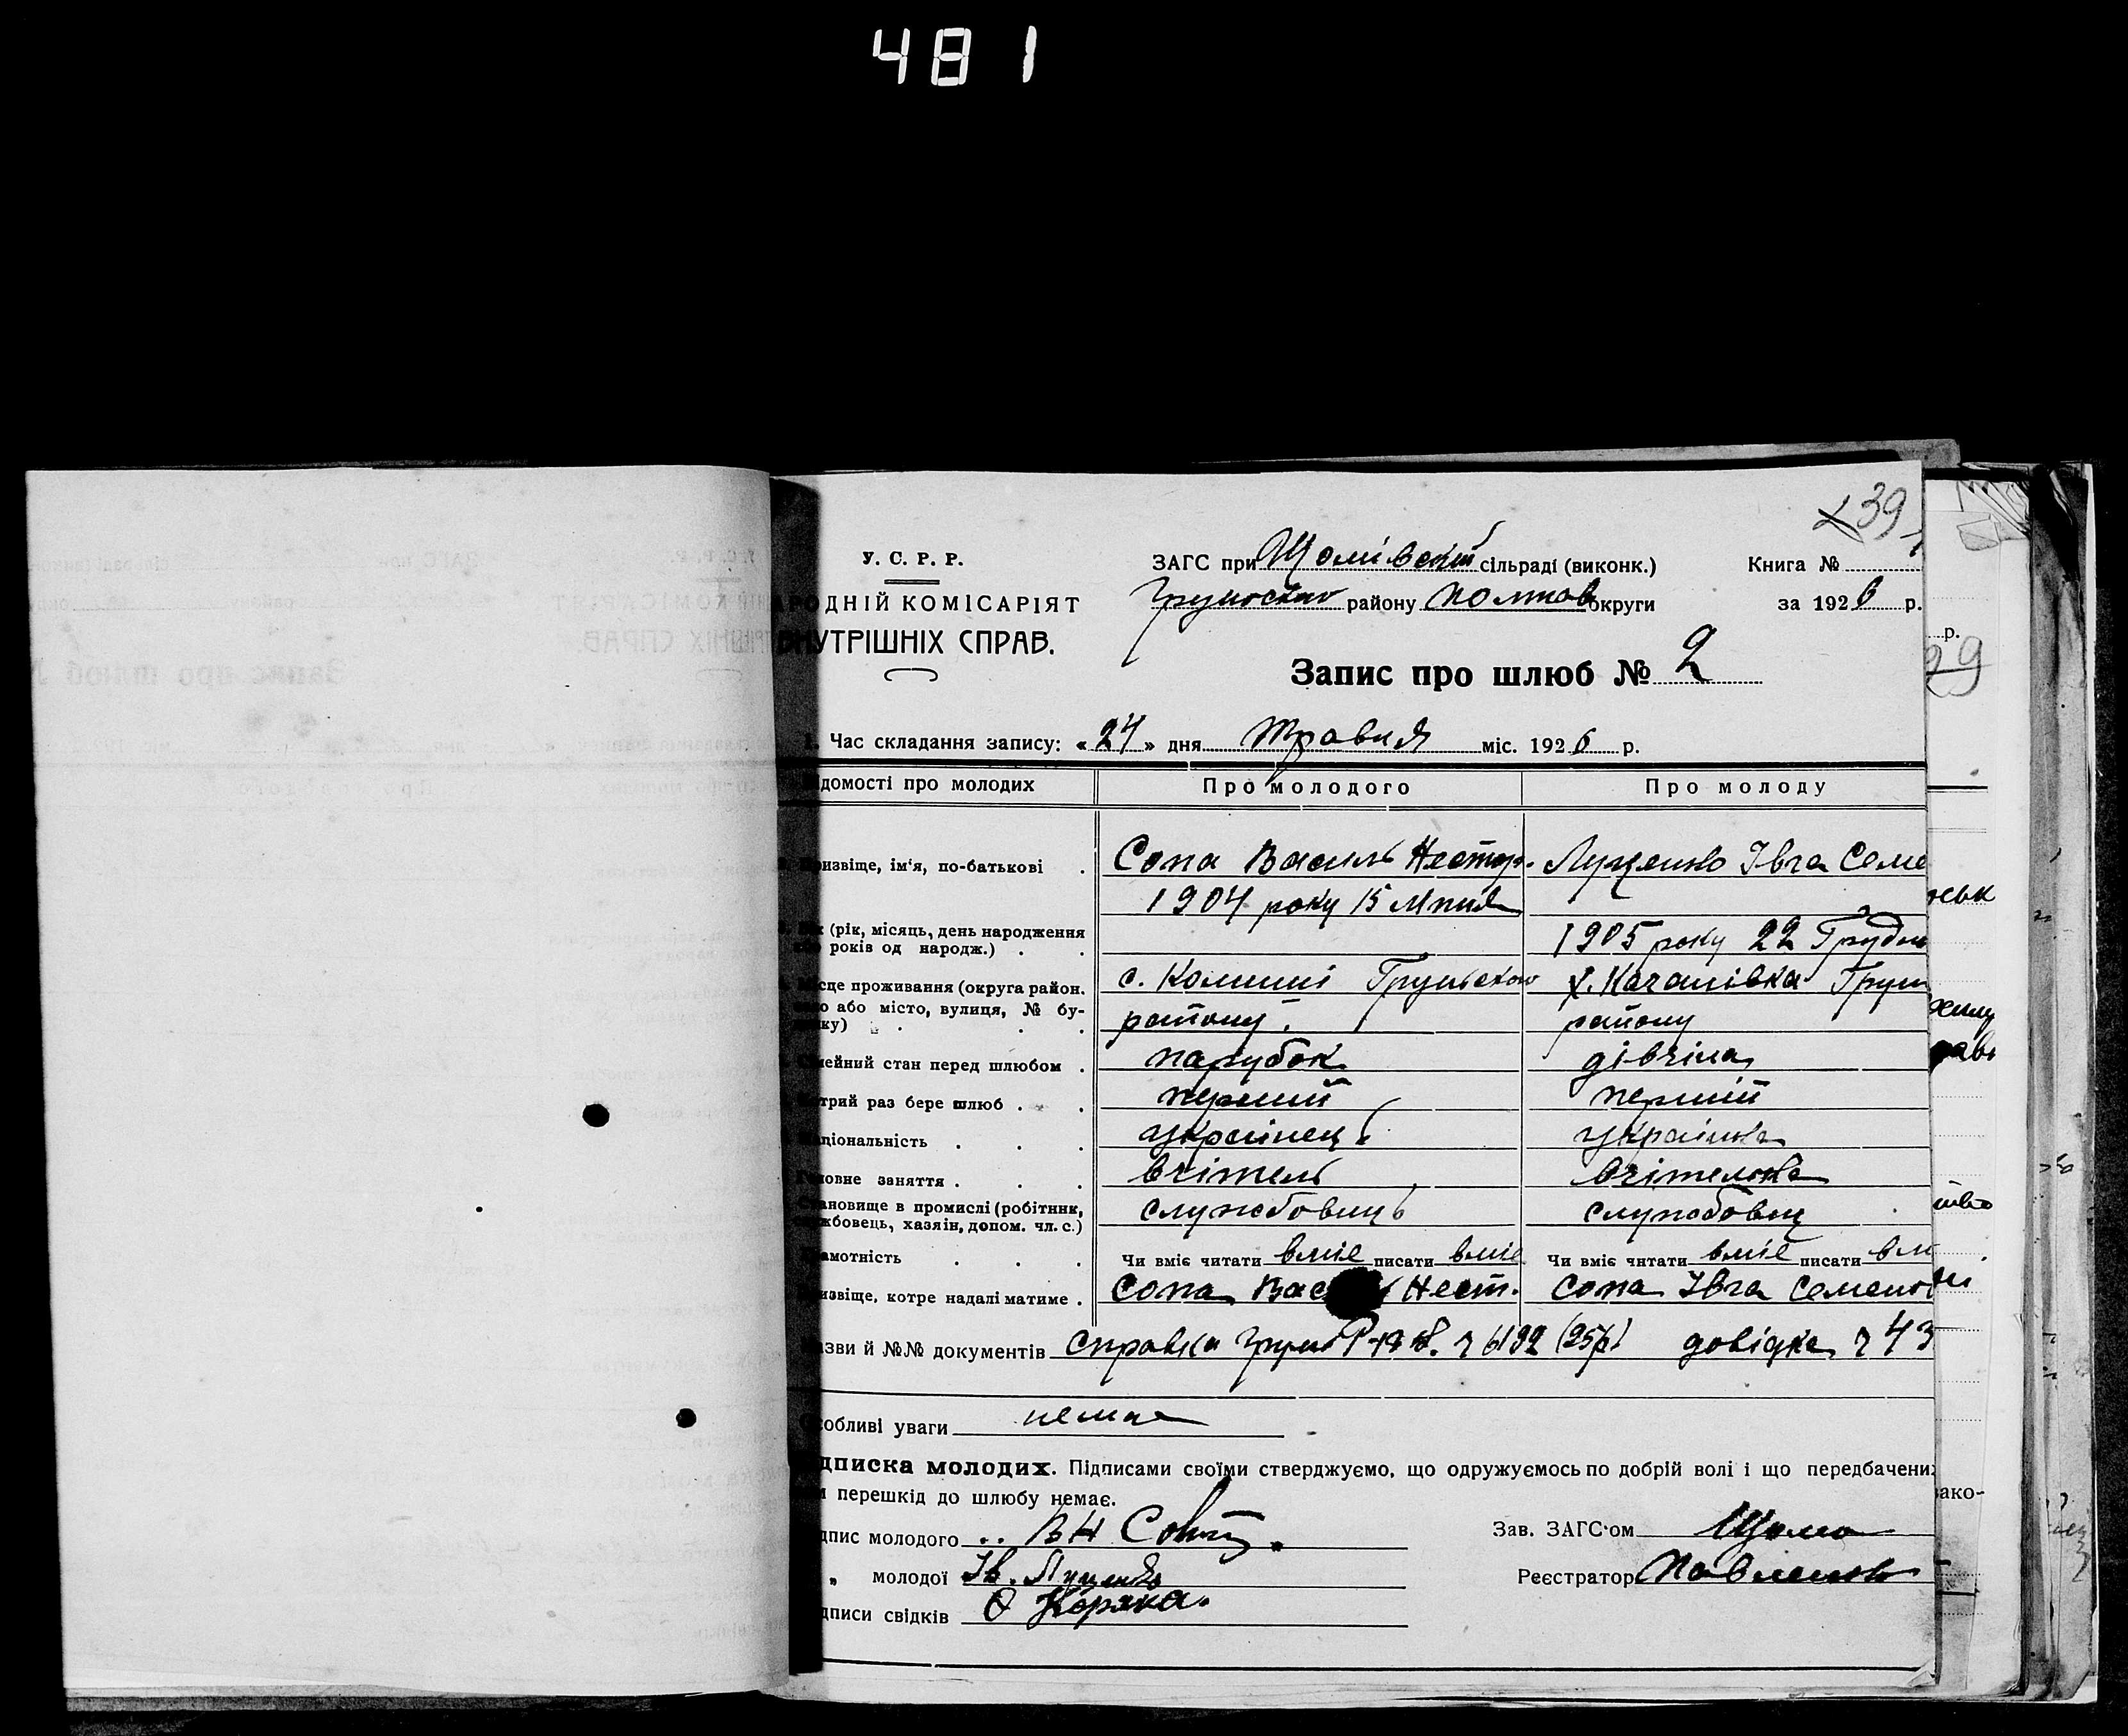 481
39
У. С. Р. Р.
НАРОДНІЙ КОМІСАРІЯТ
ВНУТРІШНІХ СПРАВ.
ЗАГС при Щомівській сільраді (виконк.)
Грунського району Полтав округи
Книга №
за 1926 р.
Запис про шлюб № 2
1. Час складання запису: « 24 » дня травня міс. 1926 р.
ідомості про молодих Про молодого Про молоду
ризвіще, ім'я, по-батькові Сопа Василь Нестор. Луценко Івга Семе
1904 року 15 Липня
(рік, місяць, день народження
років од народж.) 1905 року 22 Грудн
сце проживання (округа район. с. Комиші Грунського х. Качанівка Грун
о або місто, вулиця, № бу-
ку) району. району
мейний стан перед шлюбом парубок дівчіна
трий раз бере шлюб перший перший
аціональність українець українка
Головне заняття вчітель вчітелька
ановище в промислі (робітник,
жбовець, хазяїн, допом. чл. с.) службовець службовец
амотність Чи вміє читати вміє писати вміє Чи вміє читати вміє писати вм
ізвіще, котре надалі матиме Сопа Вас Нест. Сопа Івга Семенов
азви й №№ документів Справка довідка ч 43
собливі уваги немає
дписка молодих. Підписами своїми стверджуємо, що одружуємось по добрій волі і що передбачени
перешкід до шлюбу немає.
дпис молодого ВН Сопа
Зав. ЗАГС'ом Щомо
„ молодої Ів. Луценко
Реєстратор Павленко
дписи свідків О Коряка.
р.
99
ськ
ако-